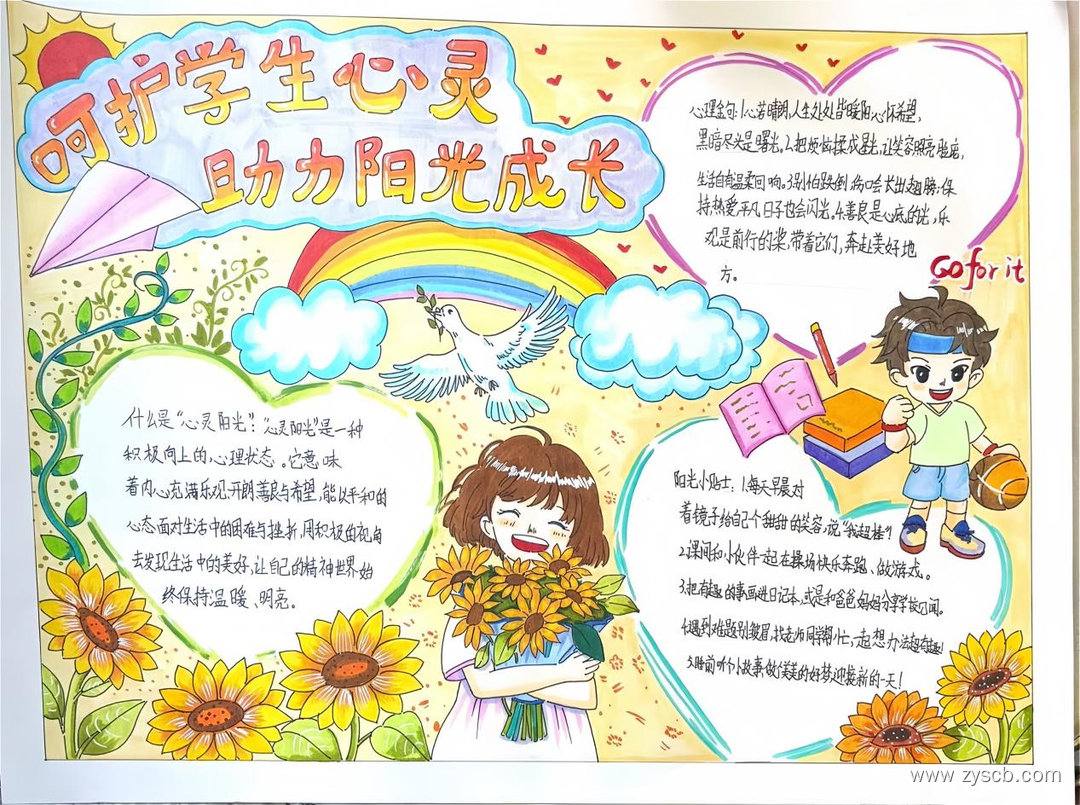 呵护学生心灵
助力阳光成长
心理金句:1.心若晴朗,人生处处皆暖阳,心怀希望,
黑暗尽头是曙光。2.把烦恼揉成星光,让笑容照亮
生活自有温柔回响。3.别怕跌倒,伤口会长出翅膀;保
持热爱,平凡日子也会闪光。4.善良是心底的光,乐
观是前行的桨,带着它们,奔赴美好地
方。
Go for it
什么是“心灵阳光”:“心灵阳光”是一种
积极向上的,心理状态。它意味
着内心充满乐观、开朗善良与希望,能以平和的
心态面对生活中的困难与挫折,用积极的视角
去发现生活中的美好,让自己的精神世界始
终保持温暖、明亮。
阳光小贴士:1.每天早晨对
着镜子给自己个甜甜的笑容,说“我超棒”!
2.课间和小伙伴一起在操场快乐奔跑、做游戏。
3.把有趣的事画进日记本,或是和爸爸妈妈分享学校见闻。
4.遇到难题别皱眉,找老师同学帮忙,一起想办法超有趣!
5.睡前听个小故事,做个美美的好梦,迎接新的一天!
www.zyscb.com